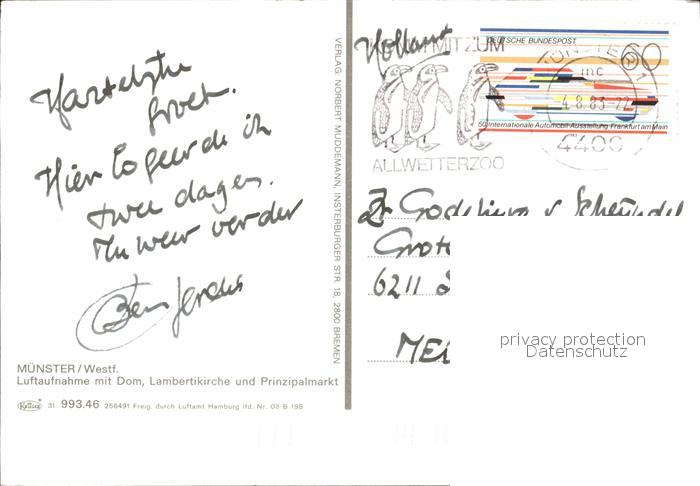 Hartelijke
groet.
Hier logeerde ik
twee dagen.
Nu weer verder
MÜNSTER/Westf.
Luftaufnahme mit Dom, Lambertikirche und Prinzipalmarkt
31. 993.46 256491 Freig. durch Luftamt Hamburg lfd. Nr. 03 B 198
VERLAG: NORBERT MUDDEMANN, INSTERBURGER STR. 18, 2800 BREMEN
Holland
MIT ZUM
ALLWETTERZOO
DEUTSCHE BUNDESPOST
60
50. Internationale Automobil-Ausstellung Frankfurt am Main
MÜNSTER 1
mc
-4.8.83-22
4400
Zr Godelieva v Scheyndel
Grote
6211
privacy protection
Datenschutz